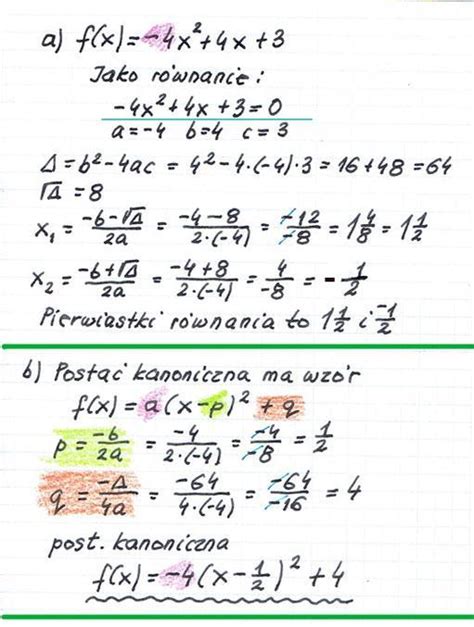 a) f(x)=-4x²+4x+3
Jako równanie:
-4x²+4x+3=0
a=-4 b=4 c=3
Δ=b²-4ac = 4²-4·(-4)·3=16+48=64
√Δ=8
x₁ = \frac{-b-√Δ}{2a} = \frac{-4-8}{2·(-4)} = \frac{-12}{-8} = 1\frac{4}{8} = 1\frac{1}{2}
x₂ = \frac{-b+√Δ}{2a} = \frac{-4+8}{2·(-4)} = \frac{4}{-8} = -\frac{1}{2}
Pierwiastki równania to 1\frac{1}{2} i \frac{-1}{2}
b) Postać kanoniczna ma wzór
f(x)=a(x-p)²+q
p = \frac{-b}{2a} = \frac{-4}{2·(-4)} = \frac{-4}{-8} = \frac{1}{2}
q = \frac{-Δ}{4a} = \frac{-64}{4·(-4)} = \frac{-64}{-16} = 4
post. kanoniczna
f(x)=-4(x-\frac{1}{2})²+4